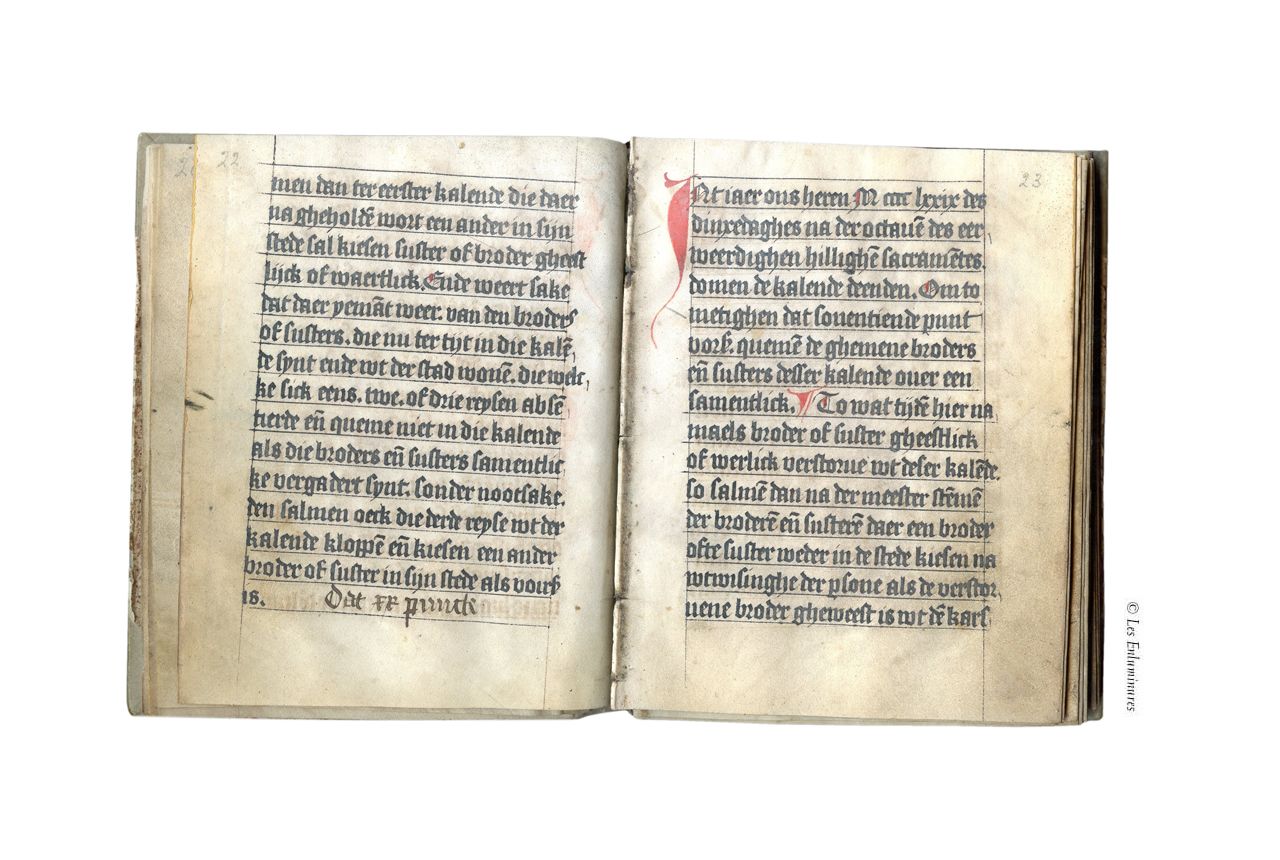 22
men dan ter eerster kalende die daer
na gheholdē wort een ander in sijn
stede sal kiesen suster of broder gheest
lijck of waertlick. Ende weert sake
dat daer yemāt weer. van den broders
of susters. die nu ter tijt in die kalē,
de synt ende wt der stad wonē. die welc,
ke sick eens. twe. of drie reysen absē
tierde eñ queme niet in die kalende
als die broders eñ susters samentlic
ke vergadert synt. sonder nootsake.
den salmen oeck die derde reyse wt der
kalende kloppē eñ kiesen een ander
broder of suster in sijn stede als voirß
is. Dat xx punck
23
Int iaer ons heren M cccc lxxix des
dinxedaghes na der octauē des eer,
weerdighen hillighē sacramētes.
domen de kalende deenden. Om to
metighen dat souentiende punt
vorß. quemē de ghemene broders
eñ susters desser kalende ouer een
samentlick. To wat tijdē hier na
maels broder of suster gheestlick
of werlick verstorue wt deser kalēde.
so salmē dan na der meester stēmē
der broderē eñ susterē daer een broder
ofte suster weder in de stede kiesen na
wtwisinghe der psone als de verstor,
uene broder gheweest is wt dē kars
© Les Enluminures